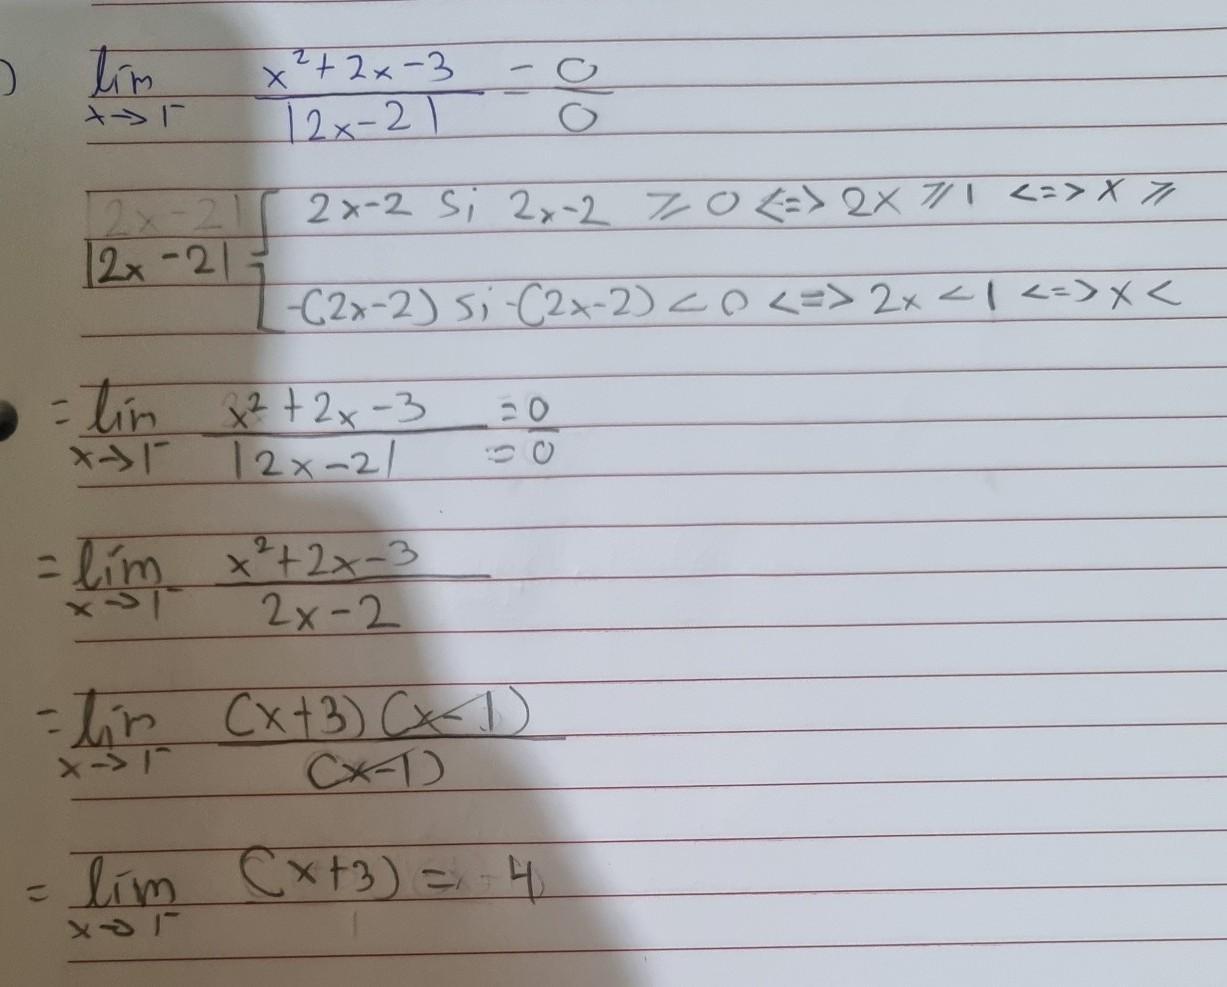 ) lim x→1⁻ x²+2x-3 / |2x-2| = 0/0
|2x-2|
|2x-2| = { 2x-2 si 2x-2 ⩾ 0 <=> 2x ⩾ 1 <=> x ⩾
-(2x-2) si -(2x-2) < 0 <=> 2x < 1 <=> x <
= lim x→1⁻ x²+2x-3 / |2x-2| =0 / =0
= lim x→1⁻ x²+2x-3 / 2x-2
= lim x→1⁻ (x+3)(x-1) / (x-1)
= lim x→1⁻ (x+3) = 4